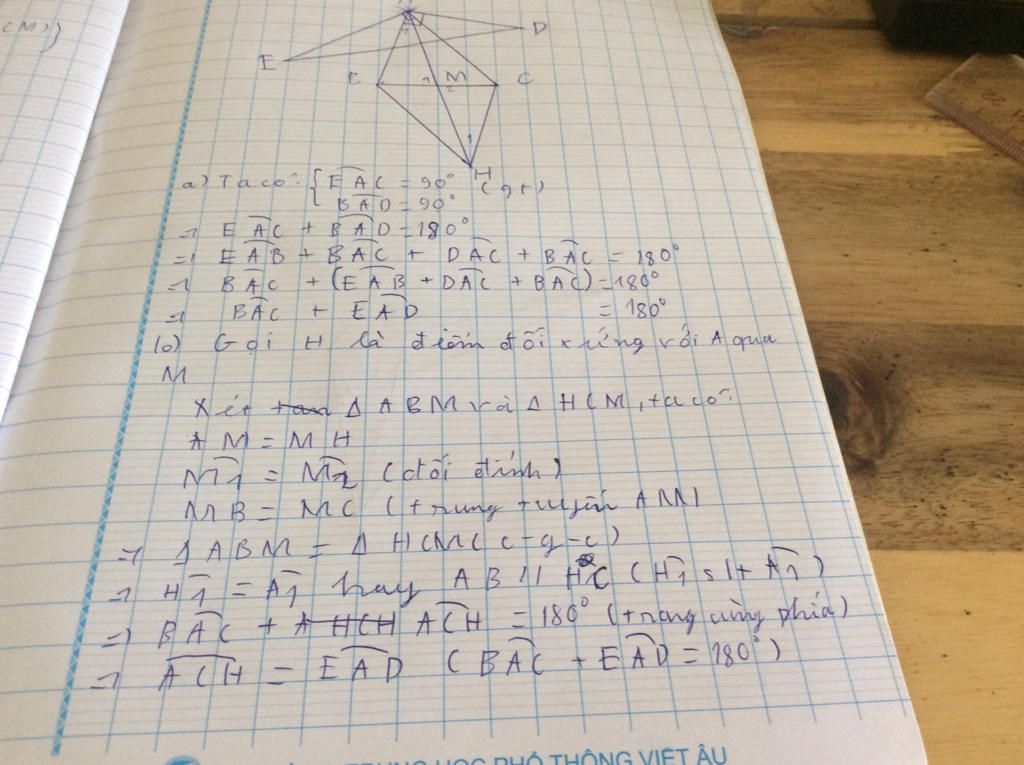 (M))
D
E
B
M
C
1
2
1
H
a) Ta có: { EAC = 90° (gt)
BAD = 90°
⇒ EAC + BAD = 180°
⇒ EAB + BAC + DAC + BAC = 180°
⇒ BAC + (EAB + DAC + BAC) = 180°
⇒ BAC + EAD = 180°
b) Gọi H là điểm đối xứng với A qua
M
Xét tam Δ ABM và Δ HCM, ta có:
AM = MH
M1 = M2 (đối đỉnh)
MB = MC (trung tuyến AM)
⇒ Δ ABM = Δ HCM (c-g-c)
⇒ H1 = A1 hay AB // HC (H1 slt A1)
⇒ BAC + A HCH ACH = 180° (trong cùng phía)
⇒ ACH = EAD (BAC + EAD = 180°)
TRUNG HỌC PHỔ THÔNG VIỆT ÂU